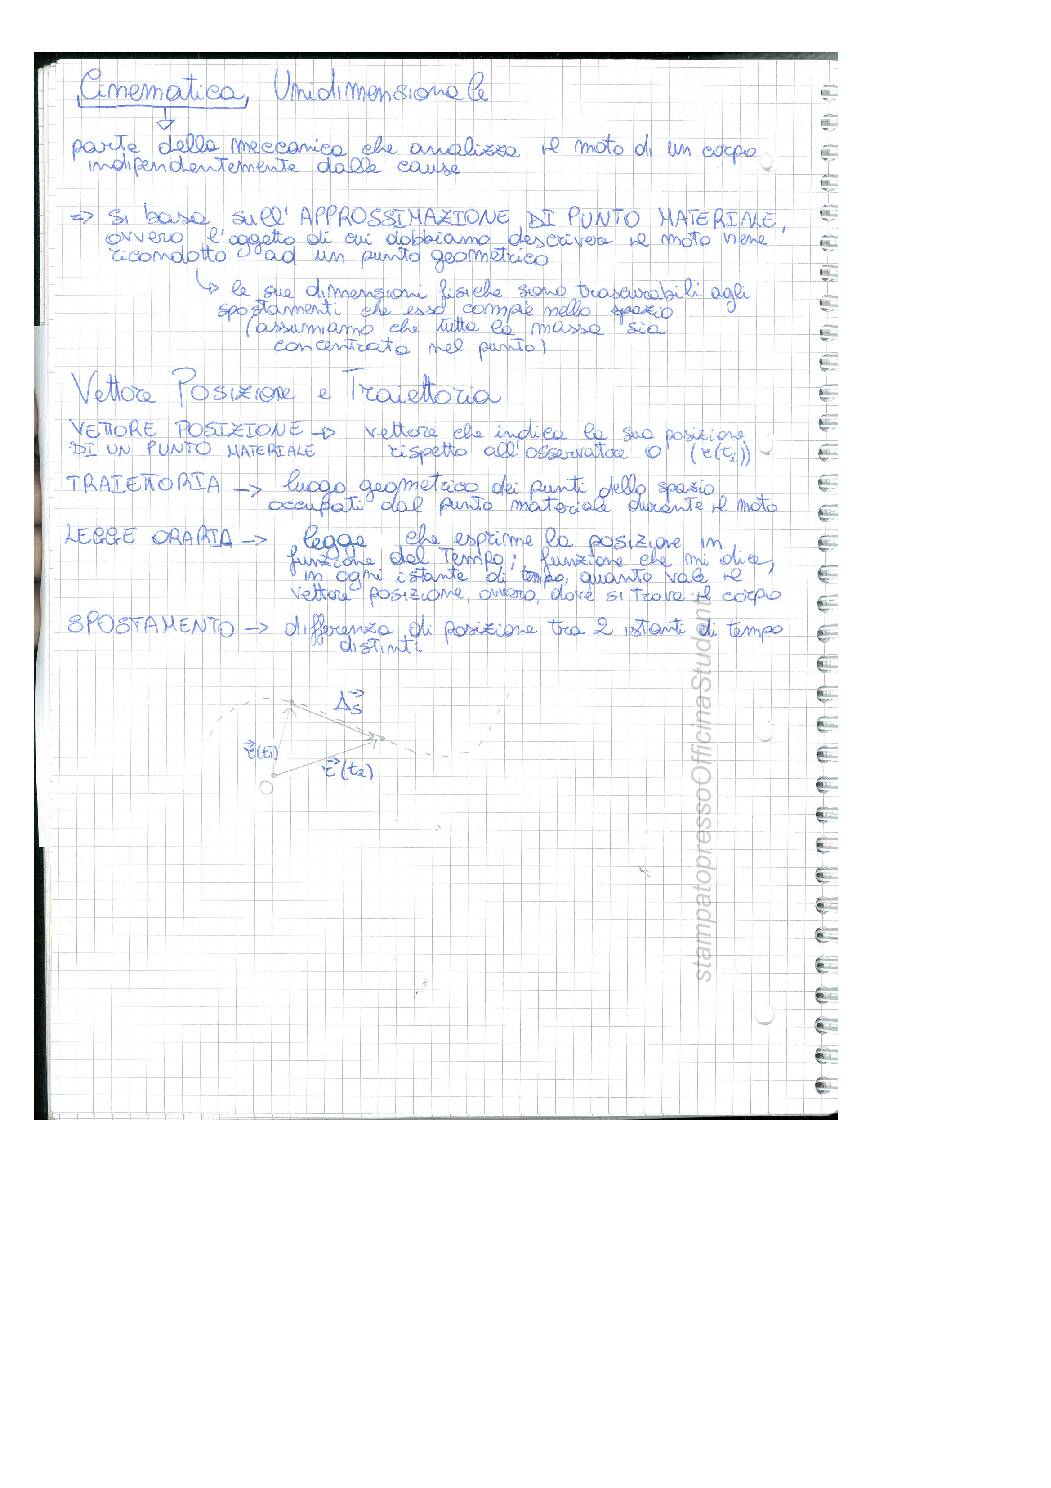 Cinematica Unidimensionale
parte della meccanica che analizza il moto di un corpo
indipendentemente dalle cause
=> si basa sull'APPROSSIMAZIONE DI PUNTO MATERIALE,
ovvero l'oggetto di cui dobbiamo descrivere il moto viene
ricondotto ad un punto geometrico
↳ le sue dimensioni fisiche sono trascurabili agli
spostamenti che esso compie nello spazio
(assumiamo che tutta la massa sia
concentrata nel punto)
Vettore Posizione e Traiettoria
VETTORE POSIZIONE → vettore che indica la sua posizione
DI UN PUNTO MATERIALE rispetto all'osservatore O (r(t₁))
TRAIETTORIA → luogo geometrico dei punti dello spazio
occupati dal punto materiale durante il moto
LEGGE ORARIA → legge che esprime la posizione in
funzione del Tempo; funzione che mi dice,
in ogni istante di tempo, quanto vale il
vettore posizione, ovvero, dove si trova il corpo
SPOSTAMENTO → differenza di posizione tra 2 istanti di tempo
distinti
Δs⃗
r⃗(t1)
r⃗(t2)
O
stampatopressoOfficinaStudenti